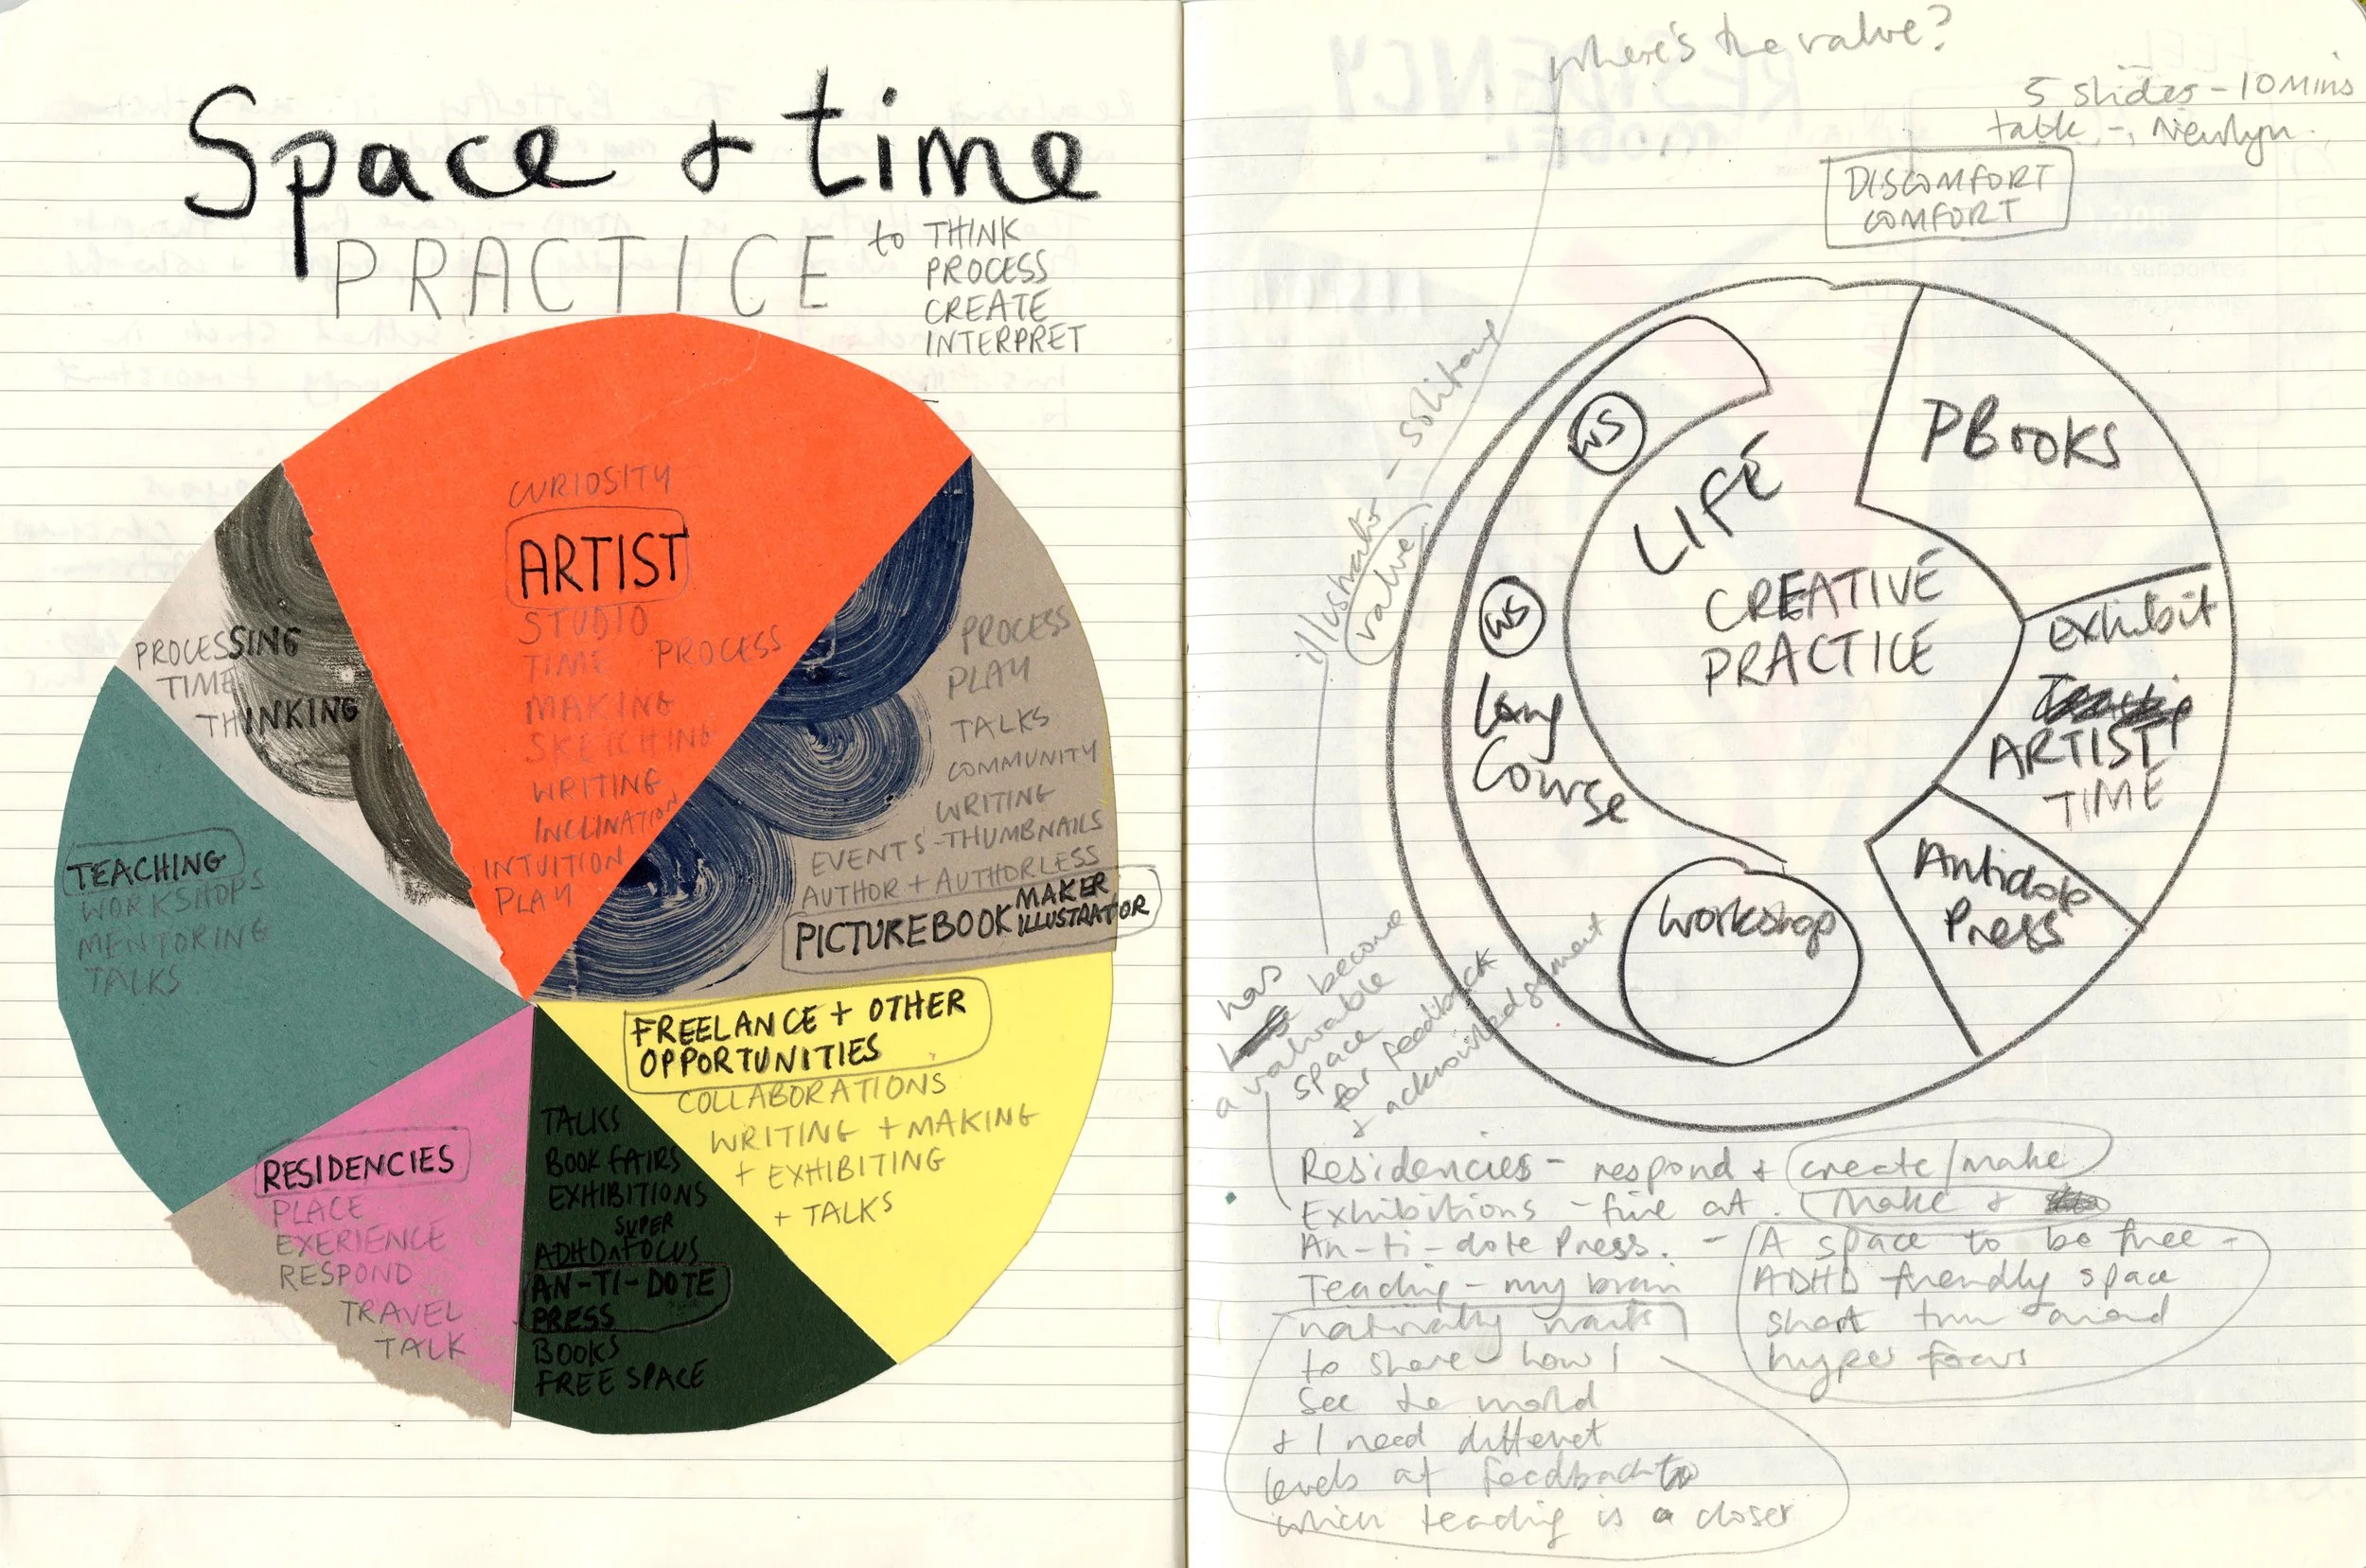 Space + time
PRACTICE
to THINK
PROCESS
CREATE
INTERPRET
CURIOSITY
ARTIST
STUDIO
TIME PROCESS
MAKING
SKETCHING
WRITING
INCLINATION
INTUITION
PLAY
PROCESSING
TIME
THINKING
PROCESS
PLAY
TALKS
COMMUNITY
WRITING
EVENTS - THUMBNAILS
AUTHOR + AUTHORLESS
PICTUREBOOK MAKER
ILLUSTRATOR
TEACHING
WORKSHOPS
MENTORING
TALKS
FREELANCE + OTHER
OPPORTUNITIES
COLLABORATIONS
WRITING + MAKING
+ EXHIBITING
+ TALKS
RESIDENCIES
PLACE
EXERIENCE
RESPOND
TRAVEL
TALK
TALKS
BOOK FAIRS
EXHIBITIONS
SUPER
ADHD FOCUS
AN-TI-DOTE
PRESS
BOOKS
FREE SPACE
where's the value?
5 slides - 10 mins
talk - Newlyn.
DISCOMFORT
COMFORT
illustrator - solitary
value
PBOOKS
WS
LIFE
CREATIVE
PRACTICE
WS
Long
Course
Exhibit
ARTIST
TIME
Antidote
Press
Workshop
has
become
a valuable
space
for feedback
+ acknowledgement
Residencies - respond + create/make
Exhibitions - fine art. Make +
An-ti-dote Press. - A space to be free -
ADHD friendly space
short turn around
hyper focus
Teaching - my brain
naturally wants
to share how I
see the world
+ I need different
levels of feedback to
which teaching is a closer